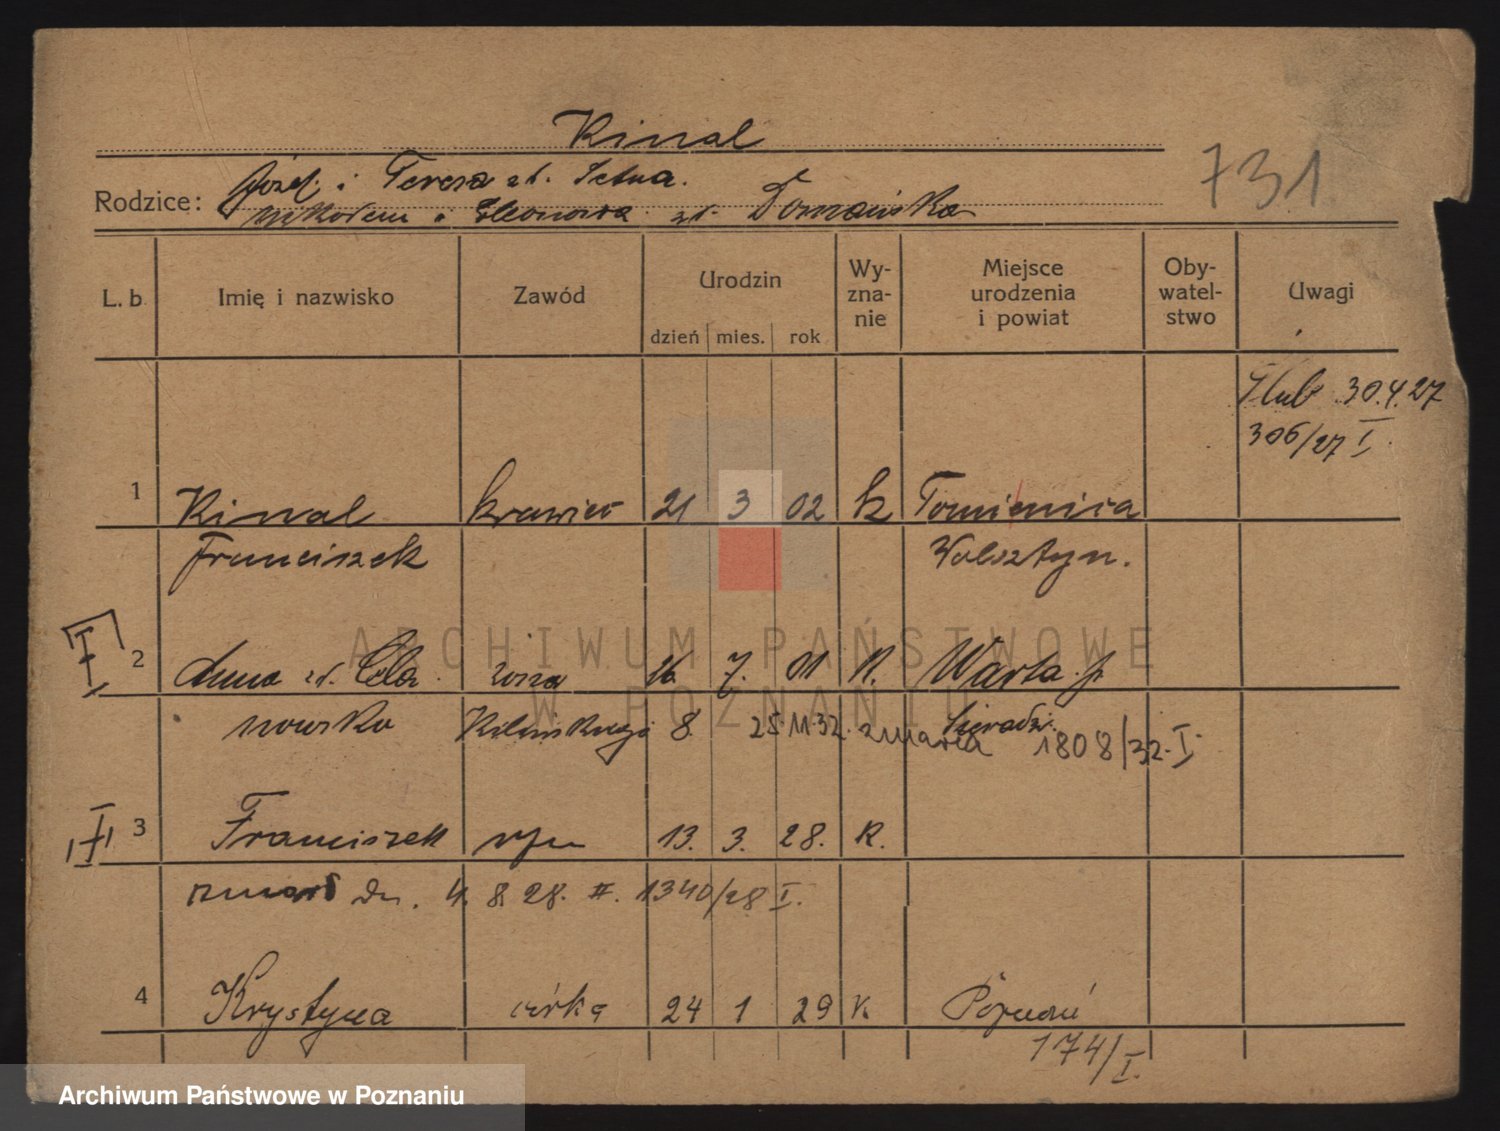 Kinal
731
Rodzice: Józef i Teresa zd.
i Eleonora zd. Domańska
L. b. Imię i nazwisko Zawód Urodzin Wy-zna-nie Miejsce urodzenia i powiat Oby-watel-stwo Uwagi
dzień mies. rok
Ślub 30.4.27
306/27 I.
1 Kinal krawiec 21 3 02 k Tomienica
Franciszek Wolsztyn.
I 2 Anna zd. Cela 26. 7. 01 K. Warta p.
nowska 8. 25.11.32. zmarła Sieradz. 1808/32. I.
I 3 Franciszek syn 13. 3. 28. K.
zmarł dn. 4. 8. 28. 1340/28 I.
4 Krystyna córka 24 1 29 K Poznań
174/I.
ARCHIWUM PAŃSTWOWE
W POZNANIU
Archiwum Państwowe w Poznaniu